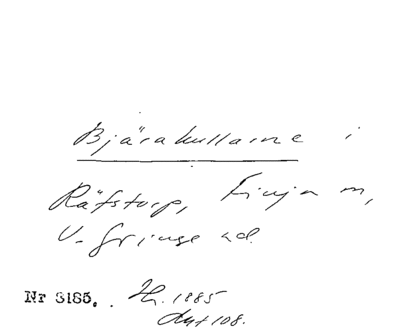 Bjärakullarne i
Räfstorp, Finja sn,
V. Göinge hd.
Nr 3185. H. 1885
Ant 108.